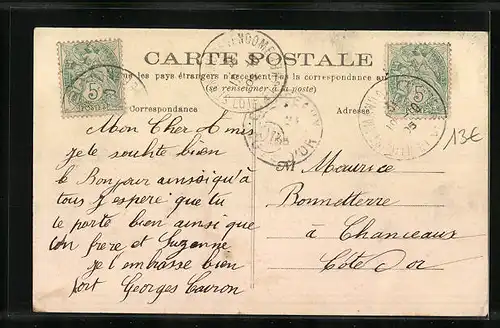 CARTE POSTALE
les pays étrangers n'acceptent pas la correspondance au
(se renseigner à la poste)
Correspondance
Adresse
5
5
13€
Mon Cher Amis
je te souhte bien
le Bonjour ainsi qu'à
tous J'espere que tu
te porte bien ainsi que
ton frere et Suzanne
je t'embrasse bien
fort Georges
M Maurice
Bonnetterre
à Chanceaux
Côte d'or